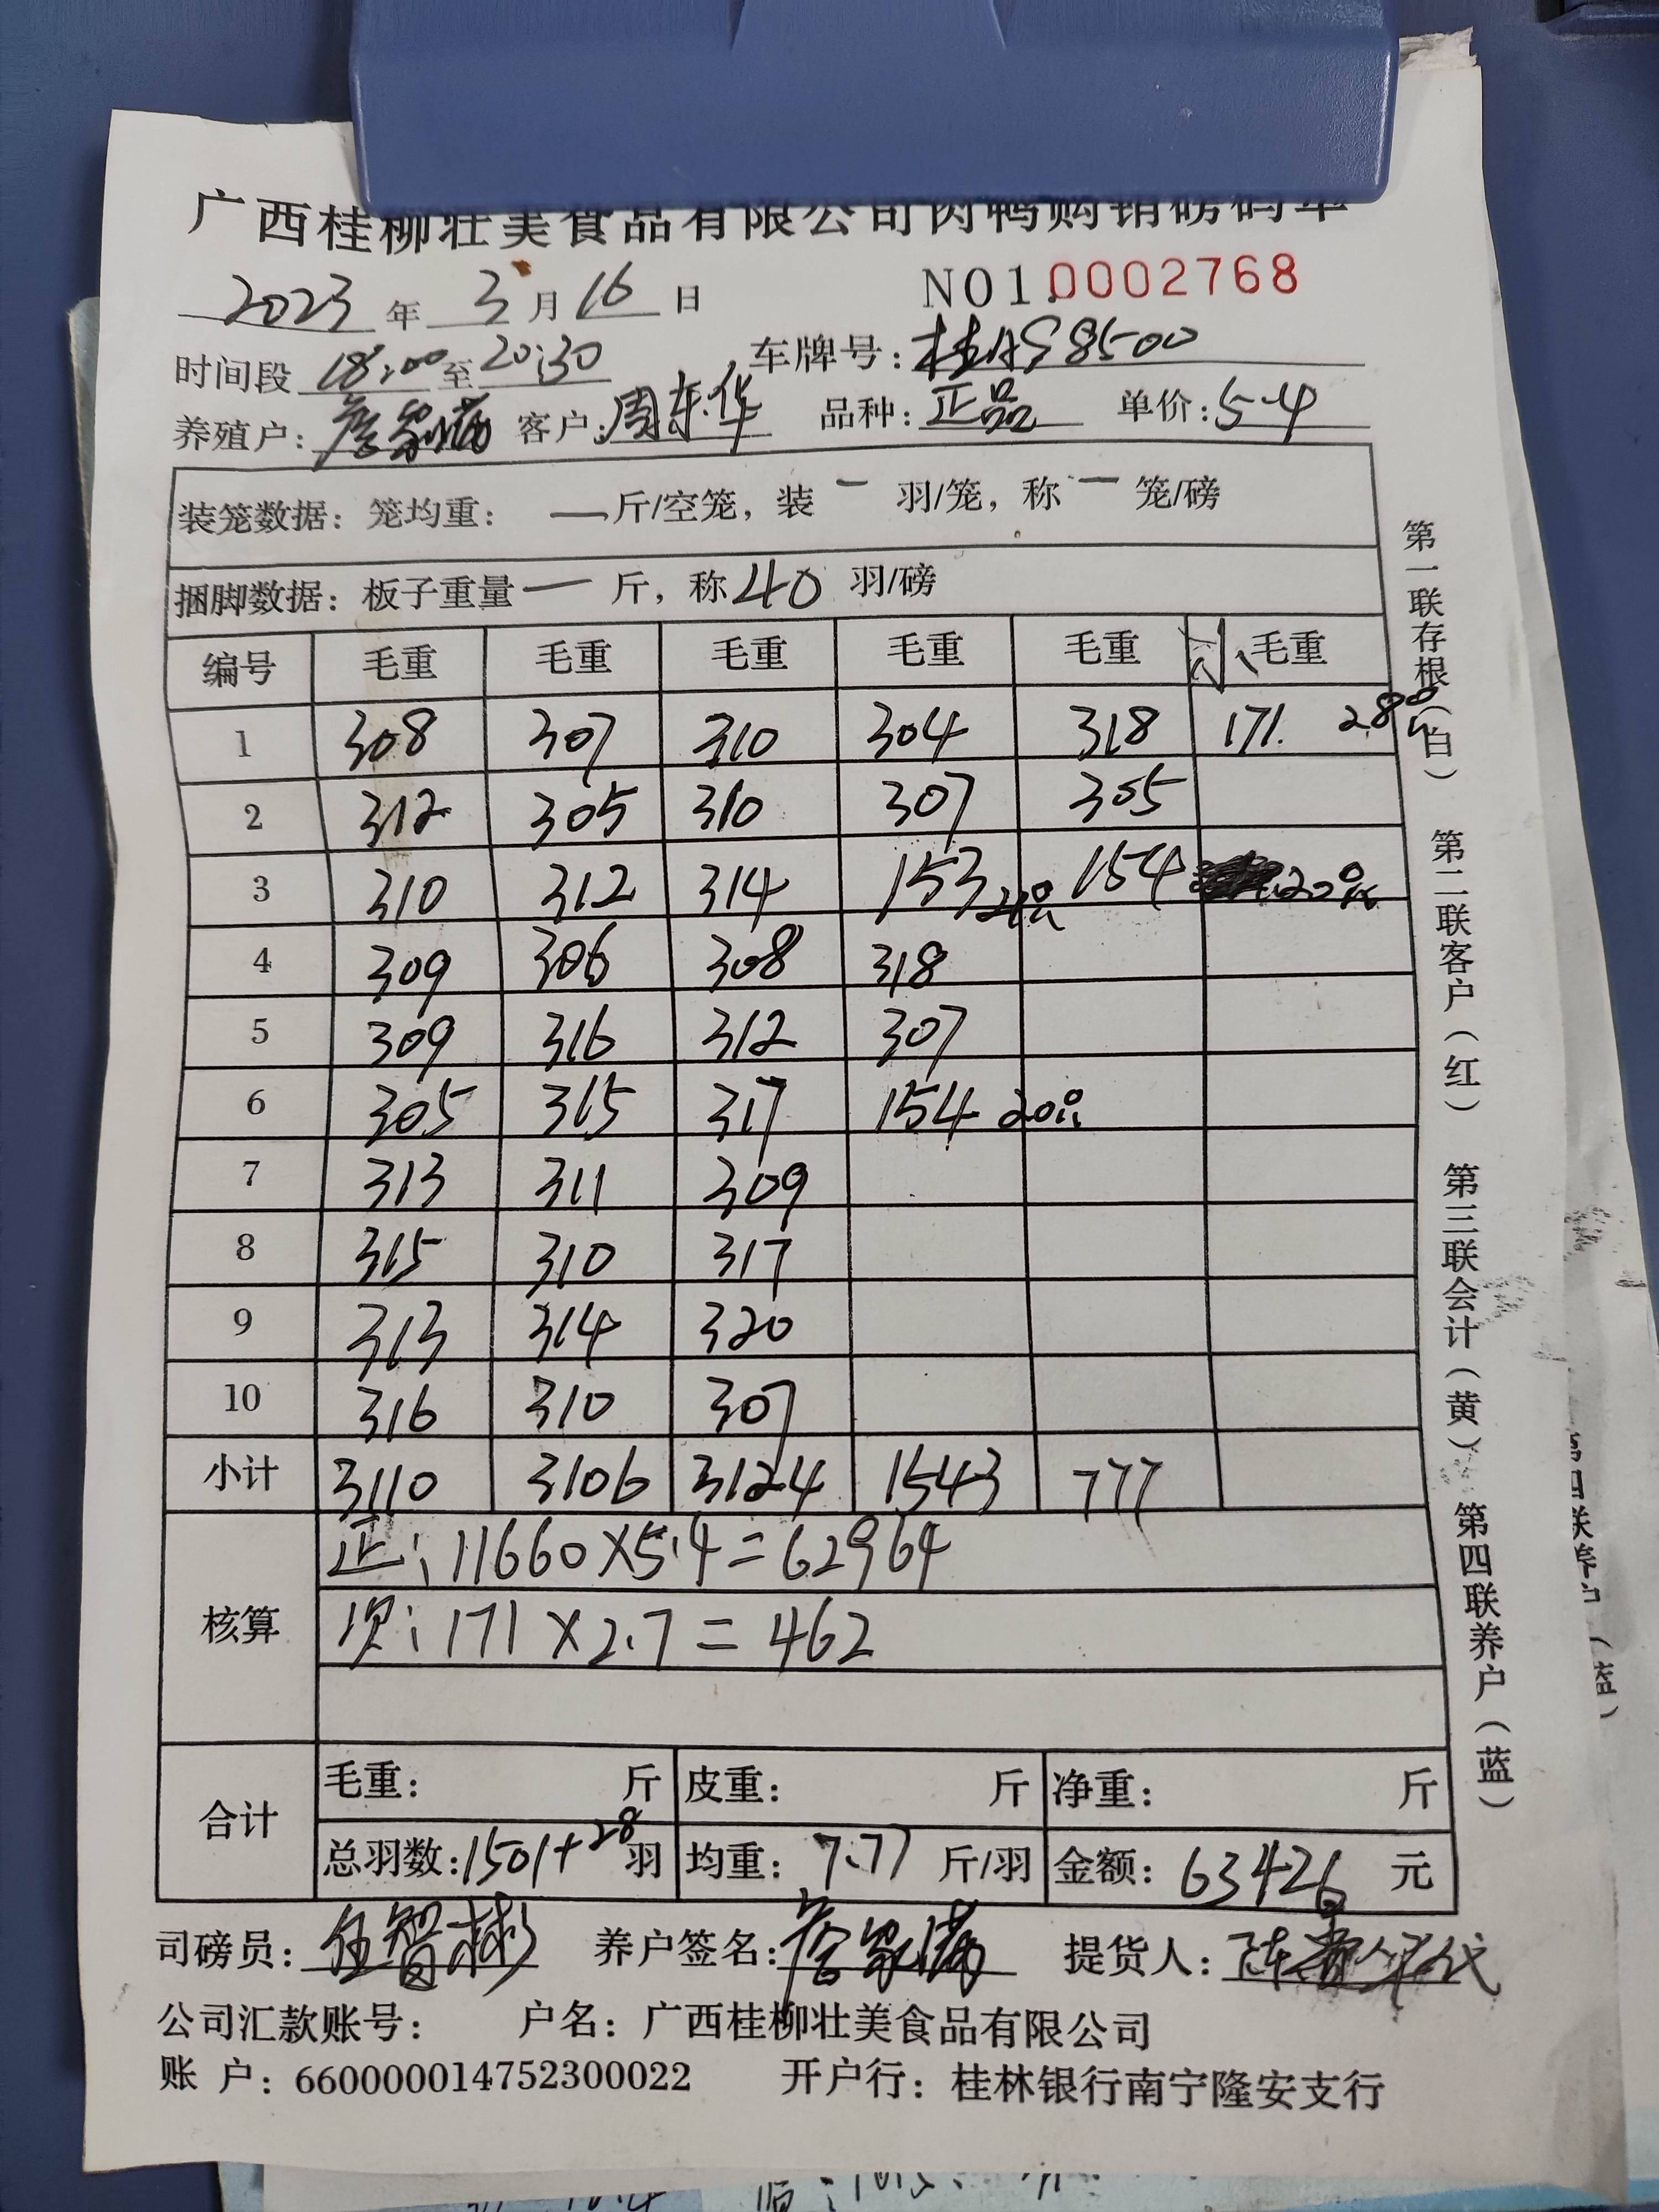 广西桂柳壮美食品有限公司肉鸭购销磅码单
2023年 3月16日 NO1.0002768
时间段 18:00至20:30 车牌号:桂AS8500
养殖户: 客户:周东华 品种:正品 单价:5.4
装笼数据:笼均重: —斤/空笼,装 — 羽/笼,称 — 笼/磅
捆脚数据:板子重量 — 斤,称40 羽/磅
编号 毛重 毛重 毛重 毛重 毛重 毛重
1 308 307 310 304 318 171. 28只
2 312 305 310 307 305
3 310 312 314 153 21只 154 20只
4 309 306 308 318
5 309 316 312 307
6 305 315 317 154 20只
7 313 311 309
8 315 310 317
9 313 314 320
10 316 310 307
小计 3110 3106 3124 1543 777
核算 正:11660×5.4=62964
次:171×2.7=462
合计 毛重: 斤 皮重: 斤 净重: 斤
总羽数:1501+28羽 均重:7.77斤/羽 金额:63426元
司磅员:任智彬 养户签名: 提货人:陈
公司汇款账号: 户名:广西桂柳壮美食品有限公司
账 户:660000014752300022 开户行:桂林银行南宁隆安支行
第一联存根(白) 第二联客户(红) 第三联会计(黄) 第四联养户(蓝)